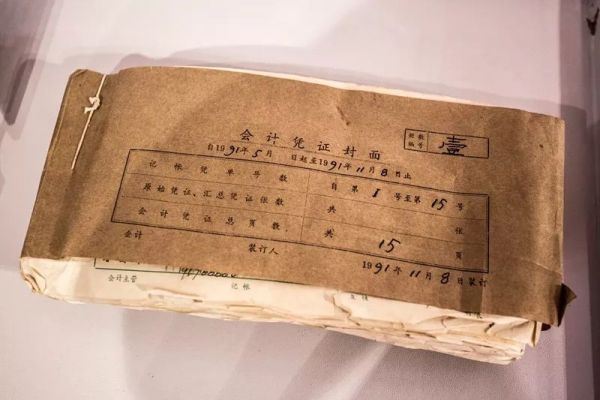 会计凭证封面
册数
编号 壹
自1991年5月 日起至1991年11月8日止
记帐凭单号数 自第1号至第15号
原始凭证、汇总凭证张数 共 张
会计凭证总页数 共15页
会计 装订人 1991年11月8日装订
会计主管 记帐